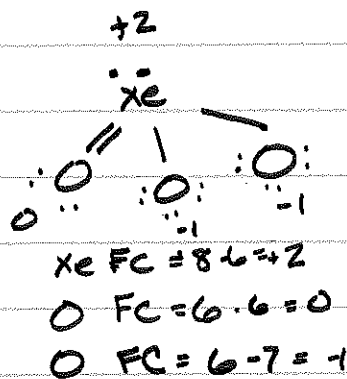 +2
Xe
O O O
0 -1 -1
Xe FC = 8-6 = +2
O FC = 6-6 = 0
O FC = 6-7 = -1